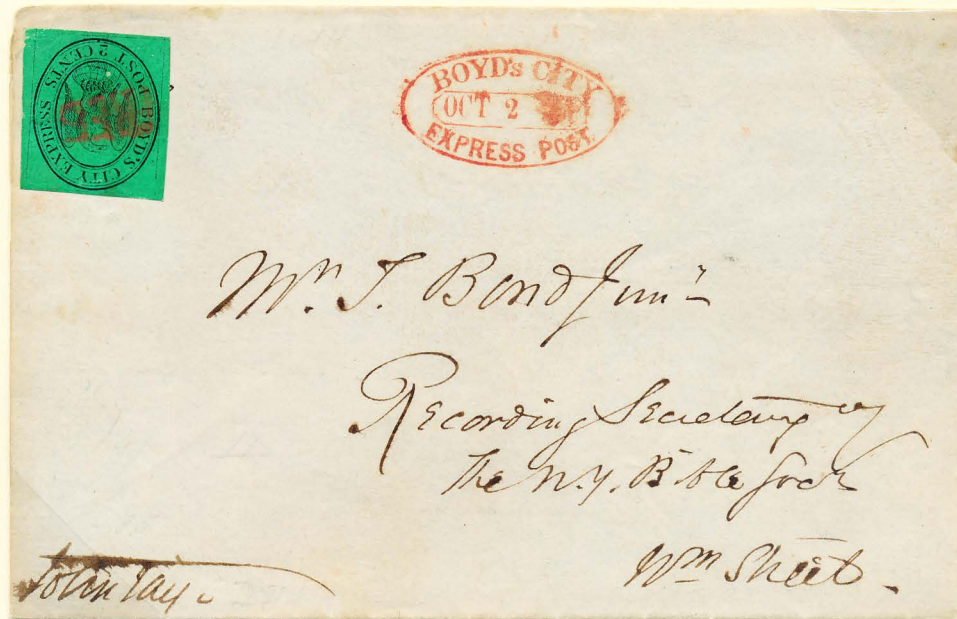 BOYD'S CITY EXPRESS POST. 2 CENTS.
BOYD'S CITY
OCT 2
EXPRESS POST.
Mr. T. Bond Junr
Recording Secretary of
The N.Y. Bible Socy
Wm Street.
John Jay.